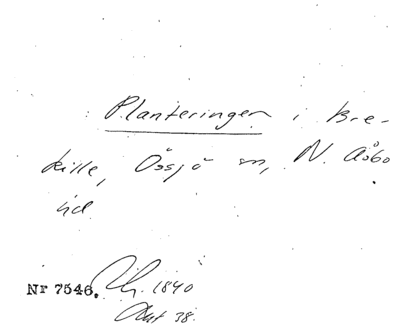 Planteringen i Bre-
kille, Össjö sn, N. Åsbo
hd
Nr 7546. 1840
38.